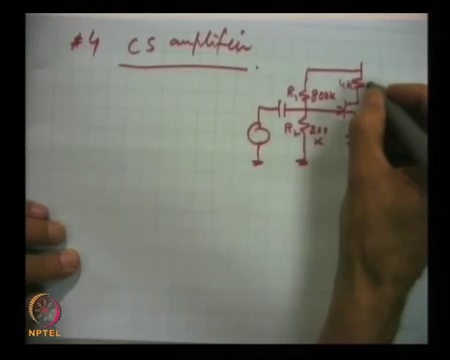 #4 CS amplifier
4k
R1 800k
R2 200
K
NPTEL